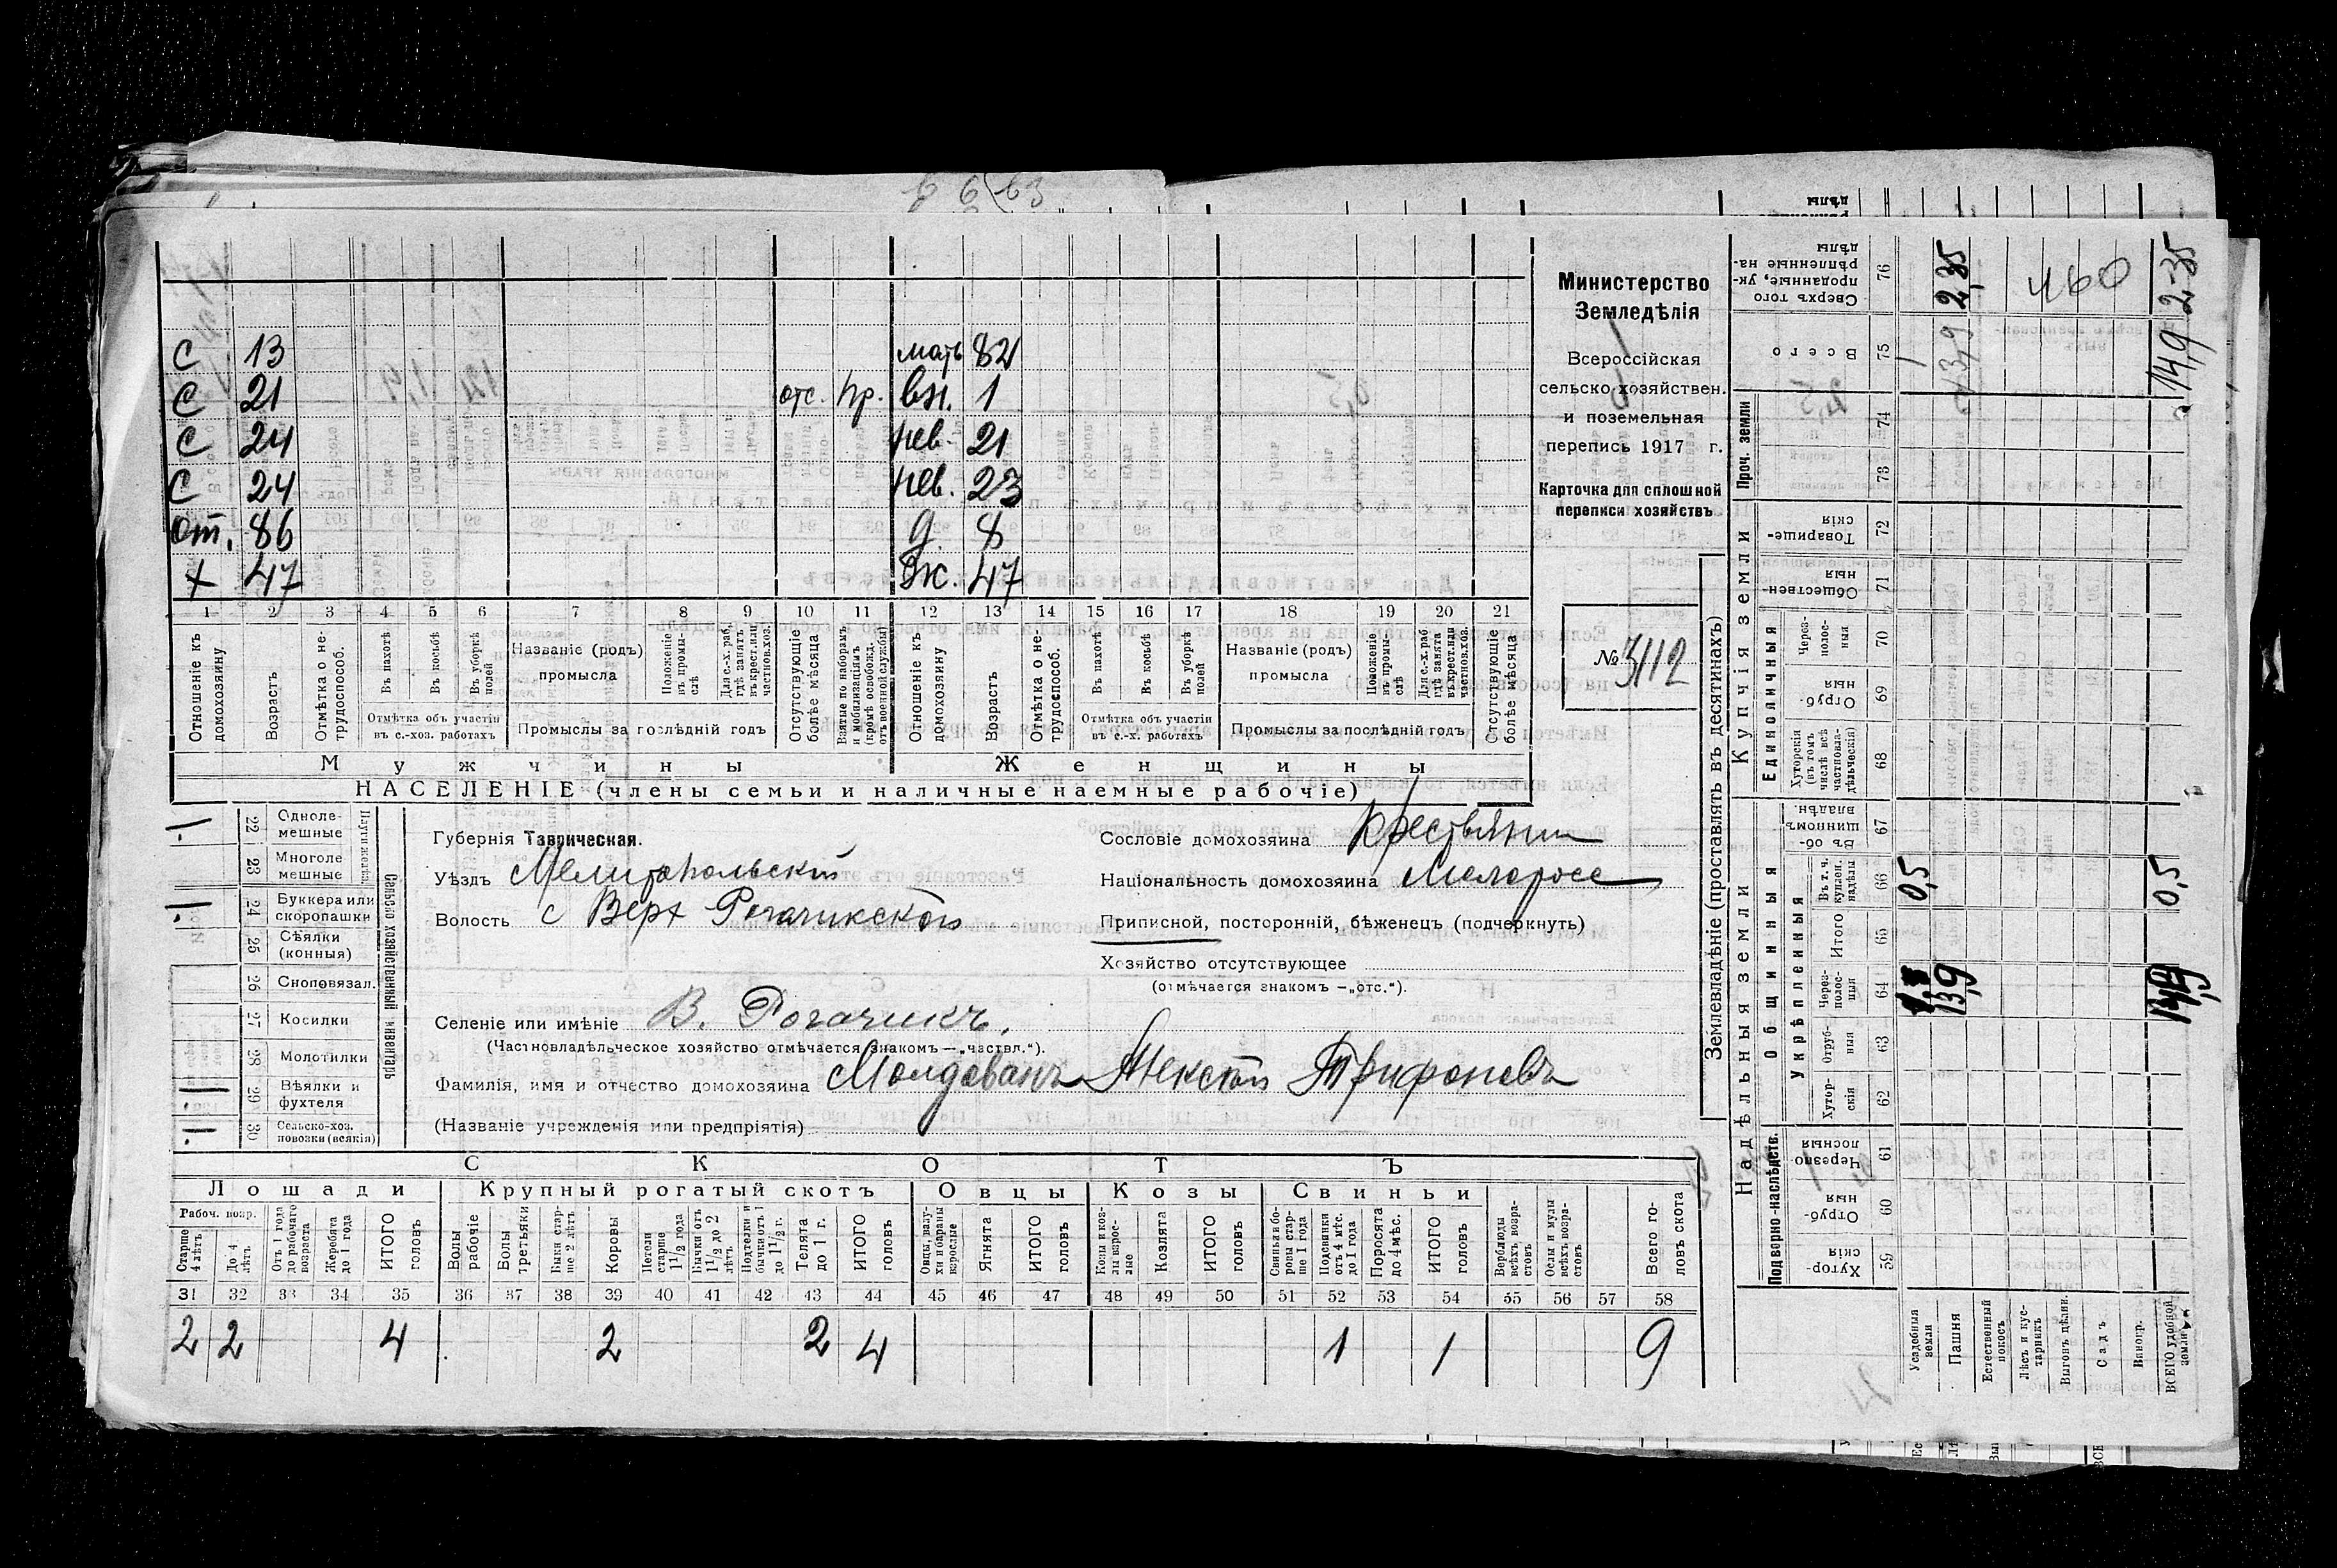 6 6(63
С 13 мать 82
С 21 отс. пр. вн. 1
С 24 нев. 21
С 24 нев. 23
От. 86 д 8
+ 47 Ж. 47
1 2 3 4 5 6 7 8 9 10 11 12 13 14 15 16 17 18 19 20 21
Отношеніе къ домохозяину
Возрастъ
Отмѣтка о не-трудоспособ.
Въ пахотѣ
Въ косьбѣ
Въ уборкѣ полей
Отмѣтка объ участіи въ с.-хоз. работахъ
Названіе (родъ) промысла
Положеніе въ промы-слѣ
Для с.-х. раб. гдѣ занятъ въ крест. или частнов. хоз.
Промыслы за послѣдній годъ
Отсутствующіе болѣе мѣсяца
Взятые по наборамъ и мобилизаціямъ (кромѣ освобожд. отъ военной службы)
Отношеніе къ домохозяину
Возрастъ
Отмѣтка о не-трудоспособ.
Въ пахотѣ
Въ косьбѣ
Въ уборкѣ полей
Отмѣтка объ участіи въ с.-х. работахъ
Названіе (родъ) промысла
Положеніе въ промы-слѣ
Для с.-х. раб гдѣ занята въ крест. или частнов. хоз.
Промыслы за послѣдній годъ
Отсутствующіе болѣе мѣсяца
Мужчины Женщины
НАСЕЛЕНІЕ (члены семьи и наличные наемные рабочіе)
Министерство
Земледѣлія
Всероссійская
сельско-хозяйствен.
и поземельная
перепись 1917 г.
Карточка для сплошной
переписи хозяйствъ
№ 3112
22 Одноле-мешные
23 Многоле мешные
24 Буккера или скоропашки
25 Сѣялки (конныя)
26 Сноповязал.
27 Косилки
28 Молотилки
29 Вѣялки и фухтеля
30 Сельско-хоз. повозки (всякія)
Плуги желѣз.
Сельско хозяйственный инвентарь
Губернія Таврическая.
Уѣздъ Мелитопольскій
Волость с Верх Рогачикской
Сословіе домохозяина Крестьянин
Національность домохозяина Малоросс
Приписной, посторонній, бѣженецъ (подчеркнуть)
Хозяйство отсутствующее
(отмѣчается знакомъ —„отс.“).
Селеніе или имѣніе В. Рогачикъ.
(Частновладѣльческое хозяйство отмѣчается знакомъ—„частвл.“).
Фамилія, имя и отчество домохозяина Молдованъ Алексѣй Трифоновъ
(Названіе учрежденія или предпріятія)
СКОТЪ
Лошади Крупный рогатый скотъ Овцы Козы Свиньи
Рабоч. возр.
Старше 4 лѣтъ
До 4 лѣтъ
Отъ 1 года до рабочаго возраста
Жеребята до 1 года
ИТОГО головъ
Волы рабочіе
Волы третьяки
Быки стар-ше 2 лѣтъ
Коровы
Нетели старше 1½ года
Бычки отъ 1½ до 2 лѣтъ
Подтелки и бычки отъ 1 до 1½ г.
Телята до 1 г.
ИТОГО головъ
Овцы, валу-хи и бараны взрослые
Ягнята
ИТОГО головъ
Козлы и коз-лы взрос-лые
Козлята
ИТОГО головъ
Свиньи и бо-ровы стар-ше 1 года
Подсвинки отъ 4 мѣс. до 1 года
Поросята до 4 мѣс.
ИТОГО головъ
Верблюды всѣхъ возра-стовъ
Ослы и мулы всѣхъ возра-стовъ
Всего го-ловъ скота
31 32 33 34 35 36 37 38 39 40 41 42 43 44 45 46 47 48 49 50 51 52 53 54 55 56 57 58
2 2 4 2 2 4 1 1 9
Землевладѣніе (проставлять въ десятинахъ)
Надѣльныя земли Купчія земли
Подворно-наслѣдств. Общинныя Единоличныя Проч. земли
Укрѣпленныя
Хутор-скія 59
Отруб-ныя 60
Черезпо-лосныя 61
Хутор-скія 62
Отруб-ныя 63
Через-полос-ныя 64
Итого 65
Въ т. ч. куплен. надѣлы 66
Въ об-щинномъ владѣн. 67
Хуторскія (въ томъ числѣ всѣ частновла-дѣльческія) 68
Отруб-ныя 69
Через-полос-ныя 70
Обществен-ныя 71
Товарище-скія 72
73
74
Всего 75
Сверхъ того проданные, ук-рѣпленные на-дѣлы 76
Усадебныя земли 0,5
Пашня 13,9 13,9 2,35
Естественный покосъ
Лѣсъ и кус-тарникъ
Выгонъ цѣлин.
Садъ
Виногр.
ВСЕГО удобной земли 0,5 14,9 2-35
460